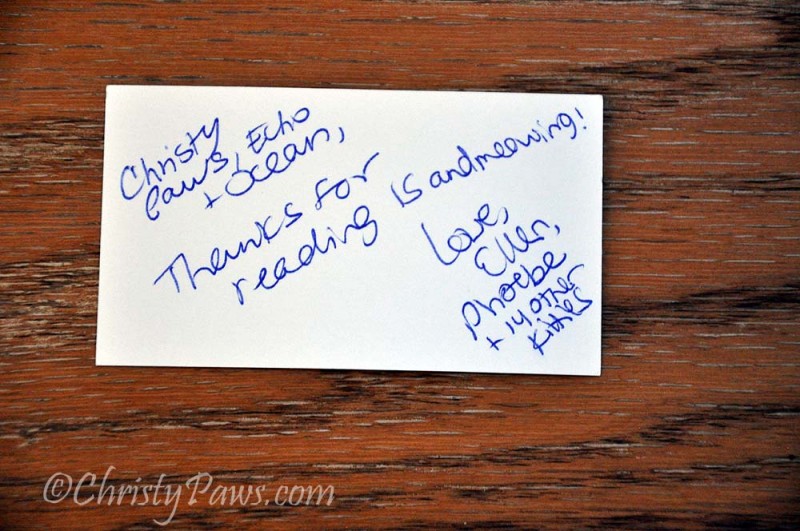 Christy
Paws, Echo
+ Ocean,
Thanks for
reading 15andmeowing!
Love,
Ellen,
Phoebe
+ 14 other
kitties
©ChristyPaws.com